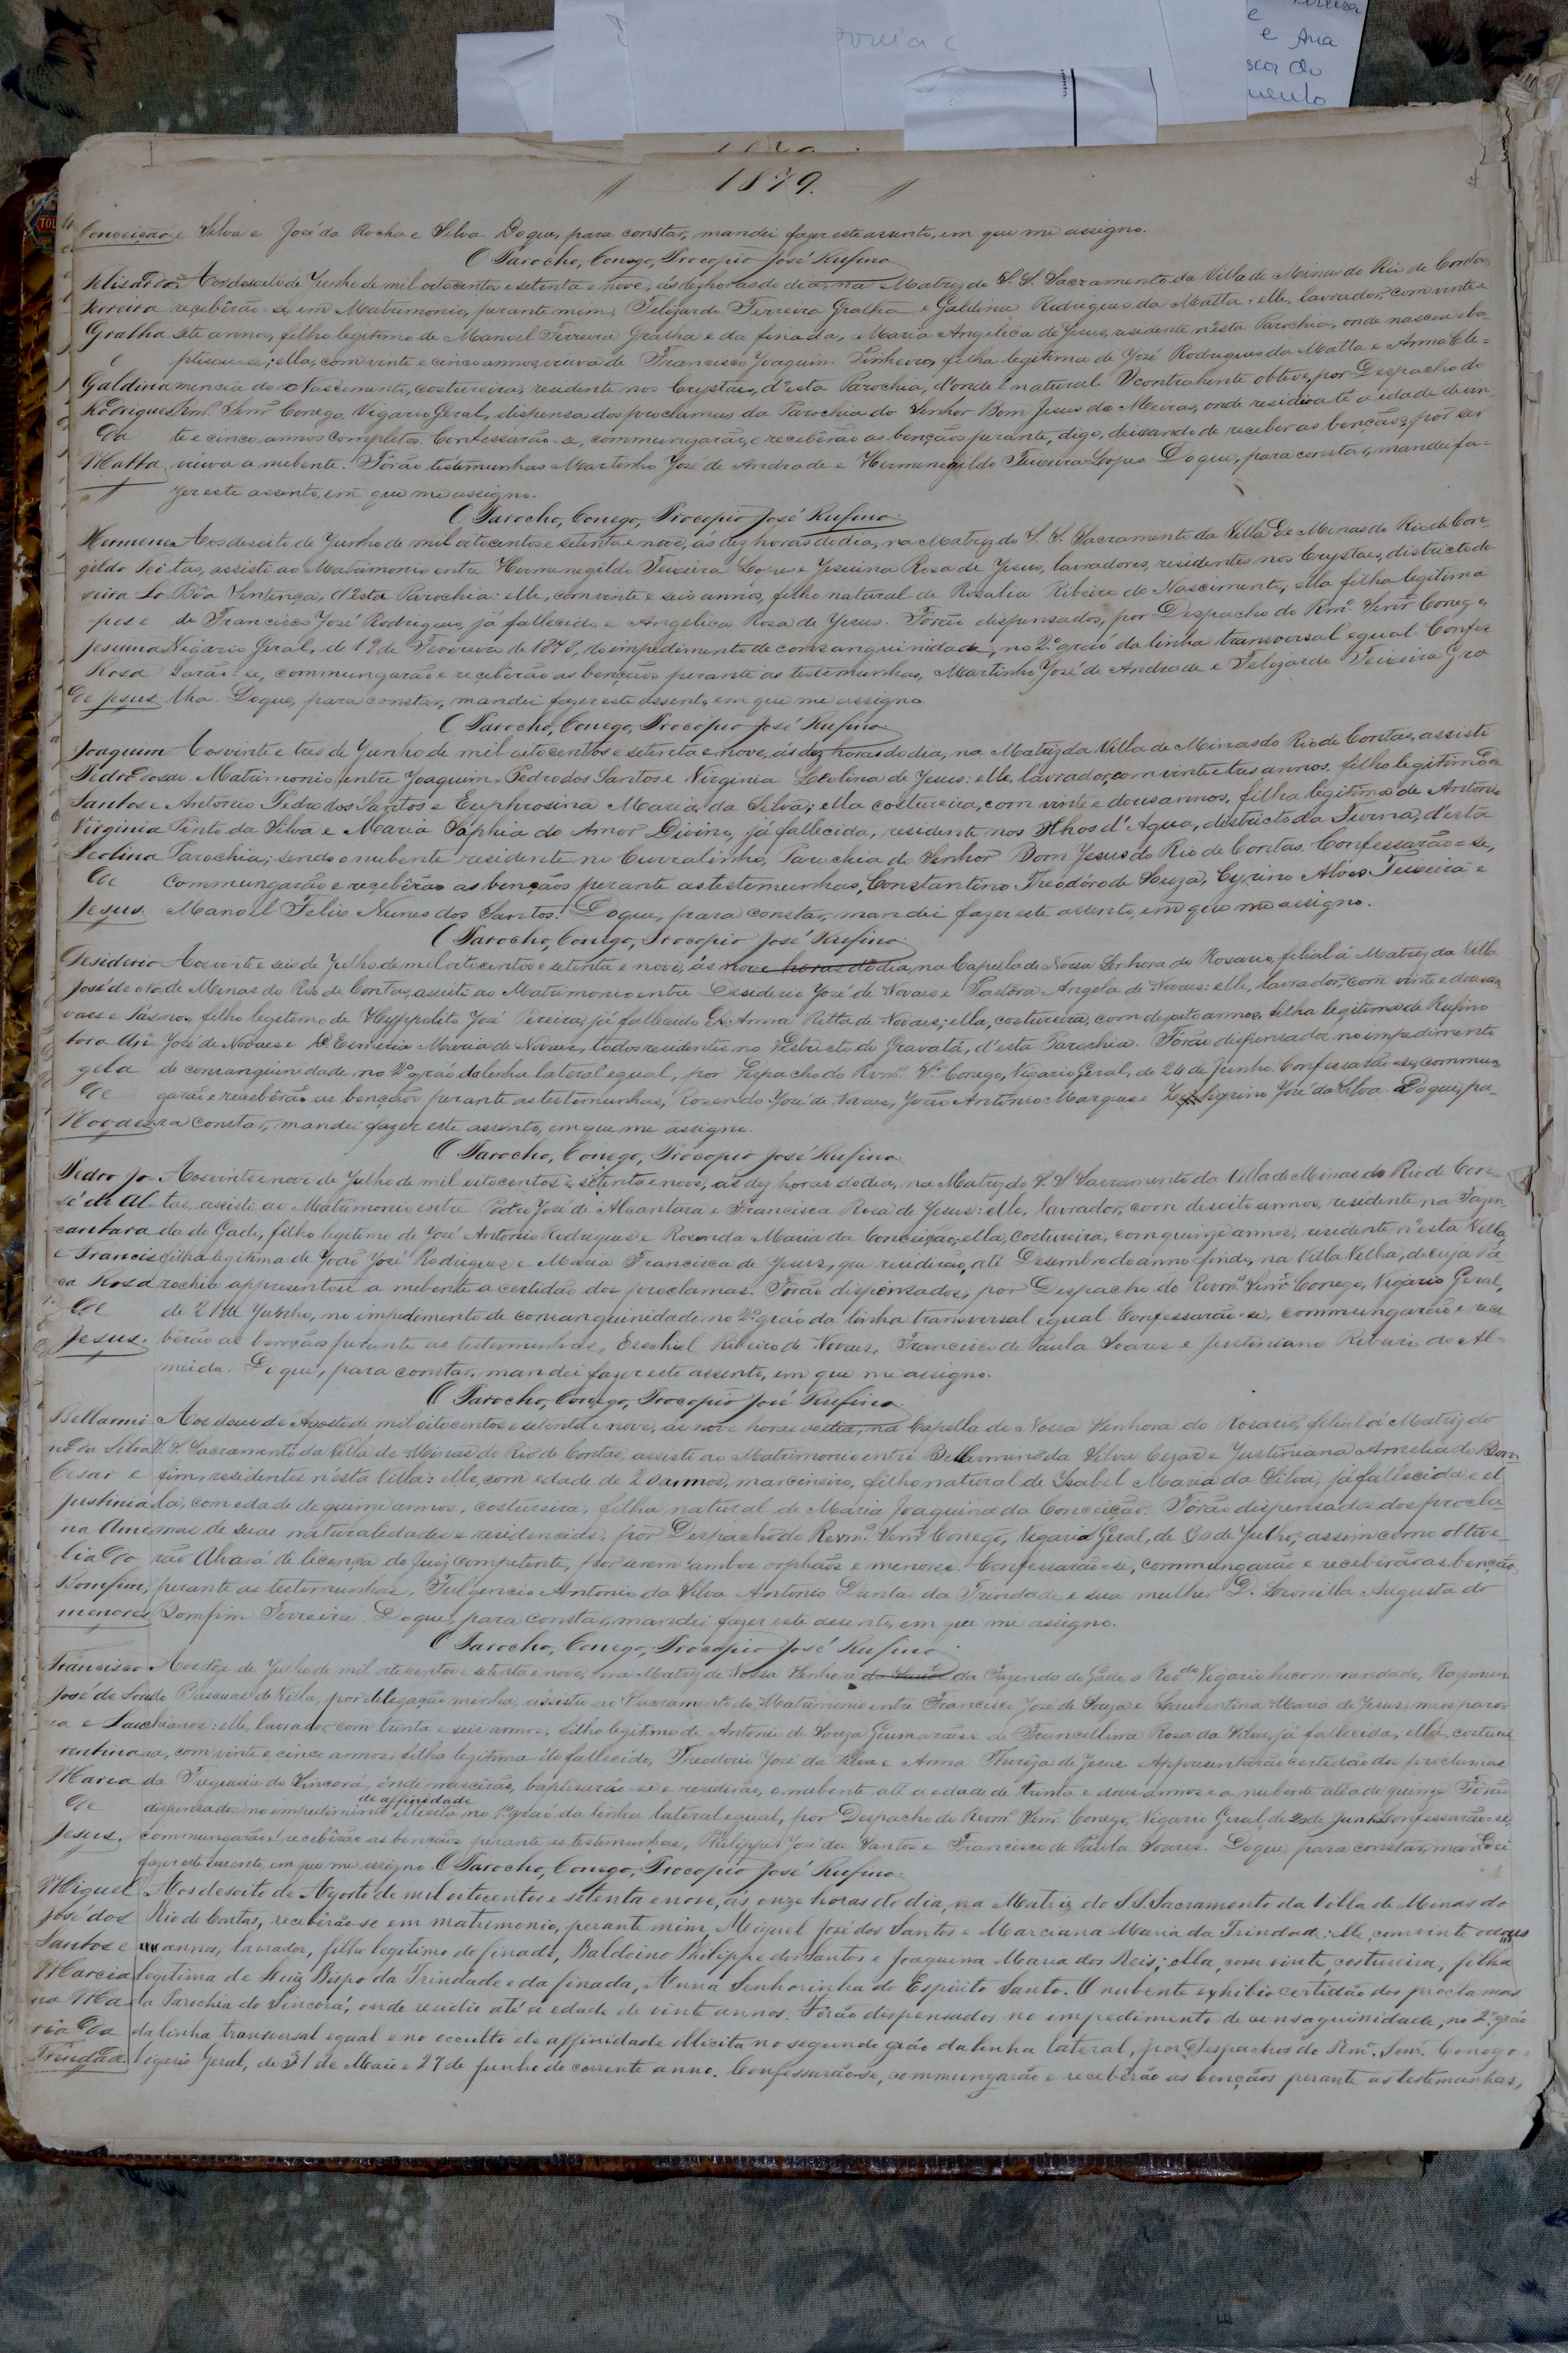 e Ana
1879.
Conceição e Silva e José da Rocha e Silva. Do que, para constar, mandei fazer este assento, em que me assigno.
O Parocho, Conego, Procopio José Rufino
Felisardo Aos desoito de Junho de mil oitocentos e setenta e nove, ás dez horas do dia, na Matriz do S. S. Sacramento da Villa de Minas do Rio de Contas,
Ferreira recebêrão-se em Matrimonio, perante mim, Felizardo Ferreira Gralha e Galdina Rodrigues da Matta: elle, lavrador, com vinte e
Gralha sete annos, filho legitimo de Manoel Ferreira Gralha e da finada, Maria Angelica de Jesus, residente n'esta Parochia, onde nasceu e ba
e ptisou-se; ella, com vinte e cinco annos, viuva de Francisco Joaquim Pinheiro, filha legitima de José Rodrigues da Matta e Anna Cle=
Galdina mencia do Nascimento, costureira, residente nos Crystaes, d'esta Parochia, d'onde é natural. O contrahente obteve, por Despacho do
Rodrigues Rmº. Senrº Conego, Vigario Geral, dispensa dos proclamas da Parochia do Senhor Bom Jesus do Meiras, onde residio até a idade de vin-
da te e cinco annos completos. Confessarão-se, commungarão, e recebêrão as bençãos perante, digo, deixando de receber as bençãos, por ser
Matta viuva a nubente. Forão testemunhas Martinho José de Andrade e Hermenegildo Teixeira Lopes. Do que, para constar, mandei fa=
zer este assento, em que me assigno.
O Parocho, Conego, Procopio José Rufino.
Hermene Aos desoito de Junho de mil oitocentos e setenta e nove, ás dez horas do dia, na Matriz do S. S. Sacramento da Villa de Minas do Rio de Con-
gildo Tei tas, assisti ao Matrimonio entre Hermenegildo Teixeira Lopes e Jesuina Rosa de Jesus, lavradores, residentes nos Crystaes, districto da
xeira Lo Bôa Sentença, d'esta Parochia: elle, com vinte e seis annos, filho natural de Rosalia Ribeiro do Nascimento, ella filha legitima
pes e de Francisco José Rodrigues, já fallecido e Angelica Rosa de Jesus. Forão dispensados, por Despacho do Rmº. Senrº Conego
Jesuina Vigario Geral, de 19 de Fevereiro de 1878, do impedimento de consanguinidade, no 2º. gráo da linha transversal egual. Confes
Rosa sarão-se, commungarão e recebêrão as bençãos perante as testemunhas, Martinho José de Andrade e Felizardo Teixeira Gra
de Jesus lha. Do que, para constar, mandei fazer este assento, em que me assigno.
O Parocho, Conego, Procopio José Rufino
Joaquim Aos vinte e tres de Junho de mil oitocentos e setenta e nove, ás dez horas do dia, na Matriz da Villa de Minas do Rio de Contas, assisti
Pedro dos ao Matrimonio entre Joaquim Pedro dos Santos e Virginia Leolina de Jesus: elle, lavrador, com vinte e tres annos, filho legitimo de
Santos e Antonio Pedro dos Santos e Euphrosina Maria da Silva; ella costureira, com vinte e dous annos, filha legitima de Antonio
Virginia Pinto da Silva e Maria Sophia do Amor Divino, já fallecida, residente nos Olhos d'Agua, districto da Furna, d'esta
Leolina Parochia; sendo o nubente residente no Curralinho, Parochia do Senhor Bom Jesus do Rio de Contas. Confessarão=se,
de commungarão e recebêrão as bençãos perante as testemunhas, Constantino Theodóro de Souza, Cyrino Alves Teixeira e
Jesus. Manoel Felix Nunes dos Santos. Do que, para constar, mandei fazer este assento, em que me assigno.
O Parocho, Conego, Procopio José Rufino.
Desiderio Aos vinte e seis de Julho de mil oitocentos e setenta e nove, ás nove horas do dia, na Capella de Nossa Senhora do Rosario, filial á Matriz da Villa
José de No de Minas do Rio de Contas, assisti ao Matrimonio entre Desiderio José de Novaes e Pastôra Angela de Novaes: elle, lavrador, com vinte e dous an
vaes e Pas nos, filho legitimo de Hyppolito José Pereira, já fallecido e D. Anna Ritta de Novaes; ella, costureira, com desoito annos, filha legitima de Rufino
tora An José de Novaes e D. Emiria Maria de Novaes, todos residentes no Districto do Gravatá, d'esta Parochia. Forão dispensados no impedimento
gela de consanguinidade no 2º gráo da linha lateral egual, por Despacho do Rvmº. Sr. Conego, Vigario Geral, de 24 de Junho. Confessarão-se, commun
de garão e recebêrão as bençãos perante as testemunhas, Rosendo José de Novaes, João Antônio Marques e Zepherino José da Silva. Do que, pa-
Novaes ra constar, mandei fazer este assento, em que me assigno.
O Parocho, Conego, Procopio José Rufino
Pedro Jo Aos vinte e nove de Julho de mil oitocentos e setenta e nove, ás dez horas do dia, na Matriz do S. S. Sacramento da Villa de Minas do Rio de Con-
sé de Al tas, assisti ao Matrimonio entre Pedro José de Alcantara e Francisca Rosa de Jesus: elle, lavrador, com desoito annos, residente na Fazen
cantara da do Gado, filho legitimo de José Antonio Rodrigues e Rosenda Maria da Conceição, ella, costureira, com quinze annos, residente n'esta Villa,
e Francis filha legitima de João José Rodrigues e Maria Francisca de Jesus, que residirão, até Desembro do anno findo, na Villa Velha, de cuja Pa-
ca Rosa rochia appresentou a nubente a certidão dos proclamas. Forão dispensados, por Despacho do Revmº. Senrº. Conego, Vigario Geral,
de de 21 de Junho, no impedimento de consanguinidade no 2º. gráo da linha transversal egual. Confessarão-se, commungarão e rece
Jesus. bêrão as bençãos perante as testemunhas, Esechiel Ribeiro de Novaes, Francisco de Paula Soares e Justiniano Ribeiro de Al=
meida. Do que, para constar, mandei fazer este assento, em que me assigno.
O Parocho, Conego, Procopio José Rufino
Bellarmi Aos dous de Agosto de mil oitocentos e setenta e nove, ás nove horas do dia, na Capella de Nossa Senhora do Rosario, filial á Matriz do
no da Silva S. S. Sacramento da Villa de Minas do Rio de Contas, assisti ao Matrimonio entre Bellarmino da Silva Cezar e Justiniana Amelia do Bom
Cesar e fim, residentes n'esta Villa: elle, com edade de 20 annos, marcineiro, filho natural de Isabel Maria da Silva, já fallecida e el
Justinia la, com edade de quinze annos, costureira, filha natural de Maria Joaquina da Conceição. Forão dispensados dos procla-
na Ame mas de suas naturalidades e residencias, por Despacho do Revmº. Senrº Conego, Vigario Geral, de 30 de Julho, assim como obtive-
lia do rão Alvará de licença do Juiz competente, por serem ambos orphãos e menores. Confessarão-se, commungarão e recebêrão as bençãos,
Bomfim, perante as testemunhas, Fulgencio Antonio da Silva Antonio Dantas da Trindade e sua mulher D. Leonilla Augusta do
menores Bomfim Ferreira. Do que, para constar, mandei fazer este assento, em que me assigno.
O Parocho, Conego, Procopio José Rufino
Francisco Aos doze de Julho de mil oitocentos e setenta e nove, na Matriz de Nossa Senhora da Fazenda do Gado, o Revdo. Vigario Encommendado, Raymun
José de Sou do Bascuas de Villa, por delegação minha, assistio ao Sacramento do Matrimonio entre Francisco José de Souza e Laurentina Maria de Jesus, meus paro=
za e Lau chianos: elle, lavrador, com trinta e seis annos, filho legitimo de Antonio de Souza Guimarães e de Francellina Rosa da Silva, já fallecida, ella, costurei
rentina ra, com vinte e cinco annos, filha legitima do fallecido, Theodorio José da Silva e Anna Thereza de Jesus. Appresentarão certidão dos proclamas
Maria da Freguesia do Sincorá, onde nascerão, baptisarão-se e residirão, o nubente até a edade de trinta e dous annos e a nubente até a de quinze. Forão
de affinidade
de dispensados no impedimento illicita no 1º gráo da linha lateral egual, por Despacho do Revmº. Senrº. Conego, Vigario Geral, de 20 de Junho. Confessarão-se,
Jesus. commungarão e recebêrão as bençãos perante as testemunhas, Philippe José dos Santos e Francisco de Paula Soares. Do que, para constar, mandei
fazer este assento, em que me assigno. O Parocho, Conego, Procopio José Rufino.
Miguel Aos desoito de Agosto de mil oitocentos e setenta e nove, ás onze horas do dia, na Matriz do S. S. Sacramento da Villa de Minas do
José dos Rio de Contas, recebêrão-se em matrimonio, perante mim, Miguel José dos Santos e Marciana Maria da Trindade: elle, com vinte e dous
Santos e annos, lavrador, filho legitimo do finado, Baldoino Philippe dos Santos e Joaquina Maria dos Reis; ella, com vinte, costureira, filha
Marcia legitima de Luiz Bispo da Trindade e da finada, Anna Senhorinha do Espirito Santo. O nubente exhibio certidão dos proclamas
na Ma da Parochia do Sincorá, onde residio até a edade de vinte annos. Forão dispensados no impedimento de consaguinidade, no 2º. gráo
ria da da linha transversal egual e no occulto de affinidade illicita no segundo gráo da linha lateral, por Despachos do Rmº. Senrº. Conego
Trindade Vigario Geral, de 31 de Maio e 27 de Junho do corrente anno. Confessarão-se, commungarão e recebêrão as bençãos perante as testemunhas,